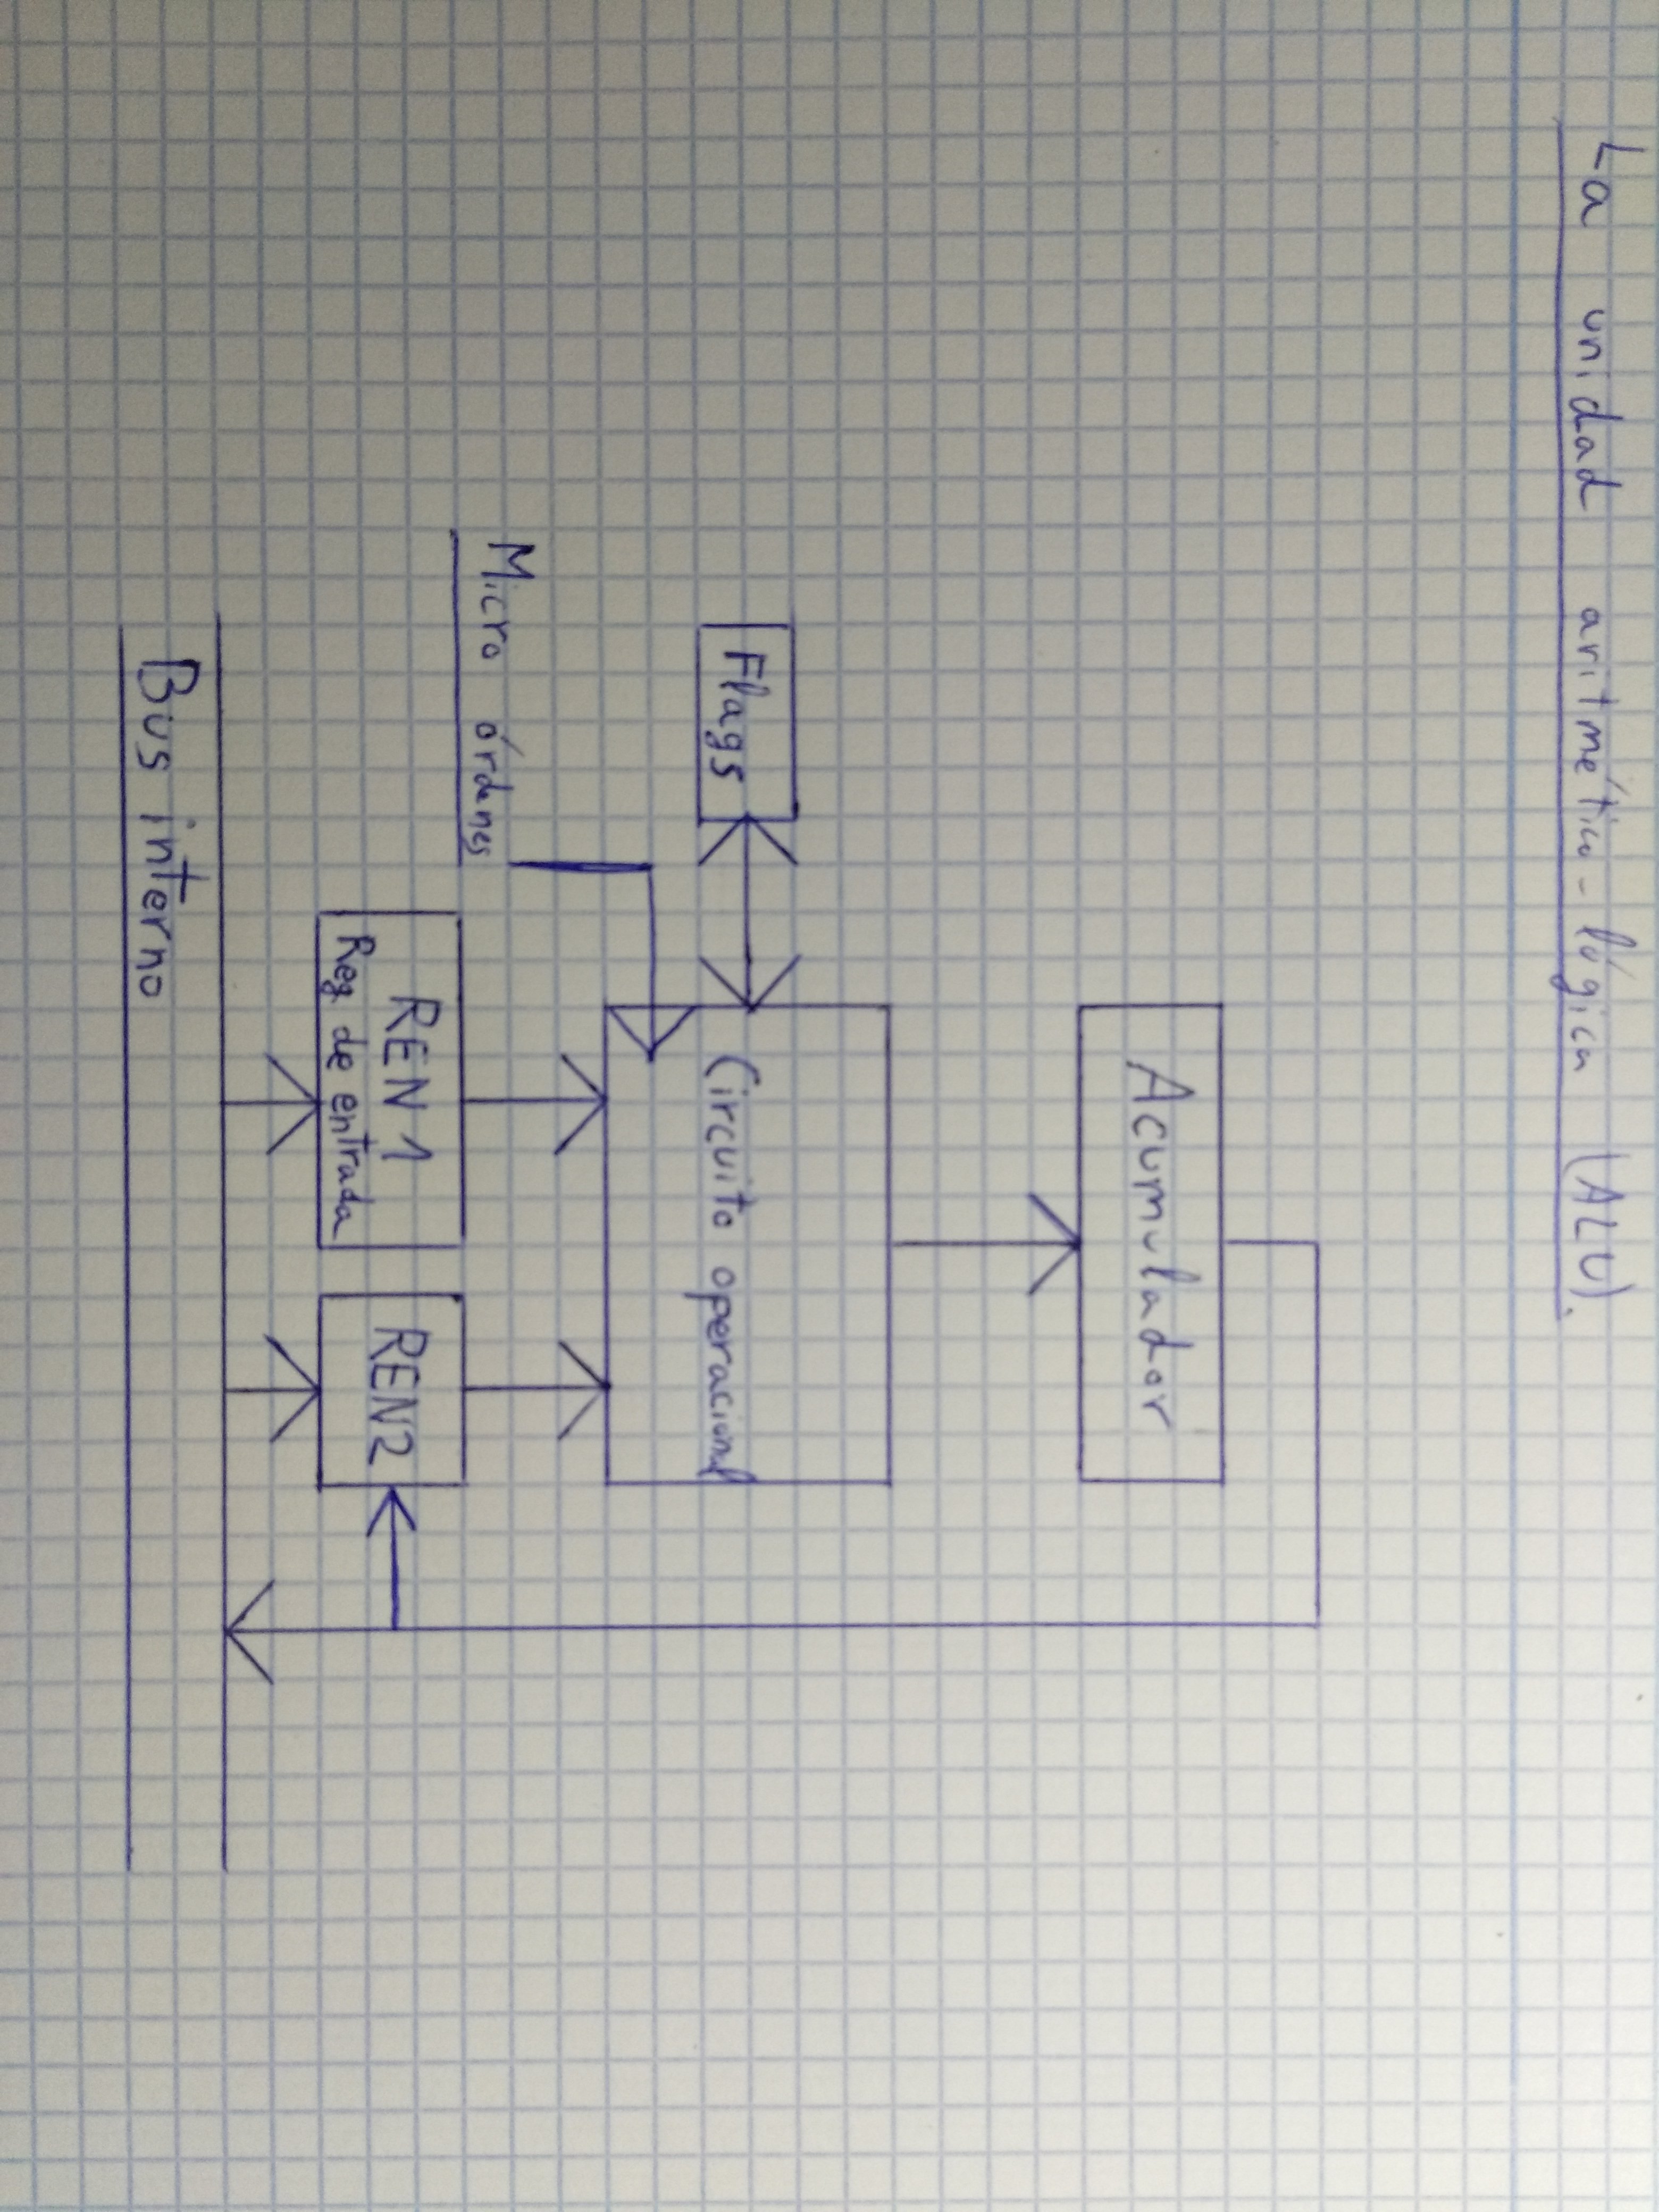 La unidad aritmético-lógica (ALU).
Acumulador
Flags
Circuito operacional
Micro órdenes
REN 1
Reg. de entrada
REN2
Bus interno